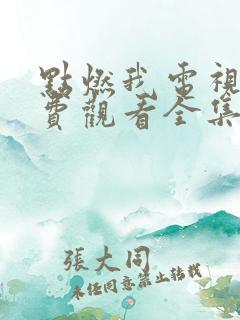 點燃我電視
費觀看全集
張大同
未經同意禁止轉載